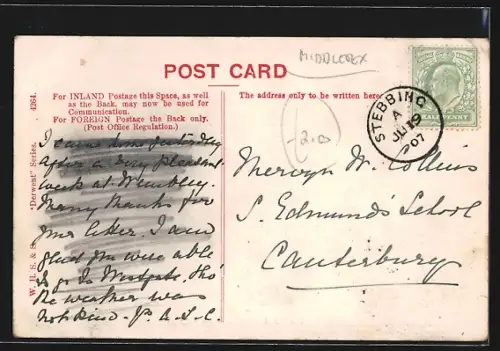 MIDDLESEX
POST CARD
4264.
For INLAND Postage this Space, as well
as the Back, may now be used for
Communication.
For FOREIGN Postage the Back only.
(Post Office Regulation.)
The address only to be written here.
HALFPENNY
STEBBING
A
JU 19
07
2.0
"Derwent" Series.
W. H. S. & S.
I came home yesterday
after a very pleasant
week at Wembley.
Many thanks for
your letter. I am
glad you were able
to go to Westgate, tho'
the weather was
not kind - P. A. L. C.
Mervyn W. Collins
S. Edmund's School
Canterbury